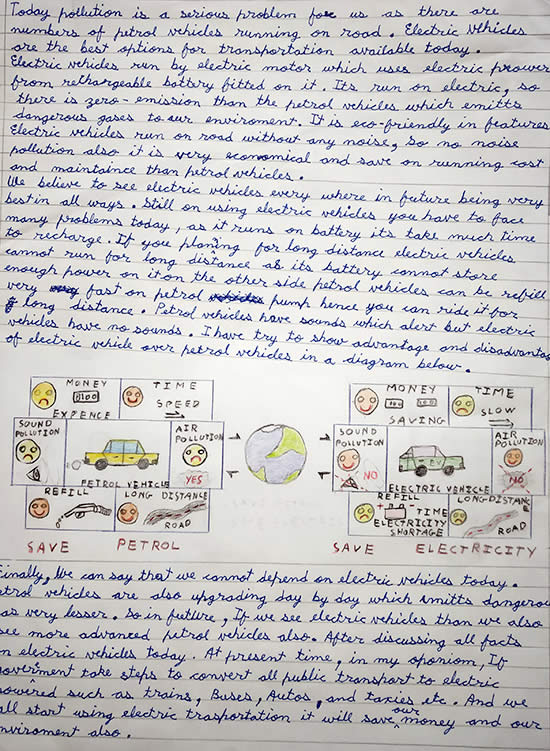 Today pollution is a serious problem for us as there are
numbers of petrol vehicles running on road. Electric vehicles
are the best options for transportation available today.
Electric vehicles run by electric motor which uses electric prower
from rechargeable battery fitted on it. Its run on electric, so
there is zero-emission than the petrol vehicles which emitts
dangerous gases to our enviroment. It is eco-friendly in features
Electric vehicles run on road without any noise, so no noise
pollution also it is very economical and save on running cost
and maintaince than petrol vehicles.
We believe to see electric vehicles every where in future being very
best in all ways. Still on using electric vehicles you have to face
many problems today, as it runs on battery its take much time
to recharge. If you planing for long distance electric vehicles
cannot run for long distance as its battery cannot store
enough power on it on the other side petrol vehicles can be refill
very fast on petrol pump hence you can ride it for
long distance. Petrol vehicles have sounds which alert but electric
vehicles have no sounds. I have try to show advantage and disadvantag
of electric vehicle over petrol vehicles in a diagram below.
MONEY
8100
EXPENCE
TIME
SPEED
SOUND
POLLUTION
PETROL VEHICLE
AIR
POLLUTION
YES
REFILL
LONG DISTANCE
ROAD
SAVE PETROL
MONEY
100 100
SAVING
TIME
SLOW
SOUND
POLLUTION
NO
ELECTRIC VEHICLE
AIR
POLLUTION
NO
REFILL
TIME
ELECTRICITY
SHORTAGE
LONG DISTANCE
ROAD
SAVE ELECTRICITY
Finally, We can say that we cannot depend on electric vehicles today.
etrol vehicles are also upgrading day by day which emitts dangerou
as very lesser. So in future, If we see electric vehicles than we also
see more advanced petrol vehicles also. After discussing all facts
n electric vehicles today. At present time, in my oponiom, If
government take steps to convert all public transport to electric
powered such as trains, Buses, Autos, and taxies etc. And we
all start using electric trasportation it will save our money and our
enviroment also.